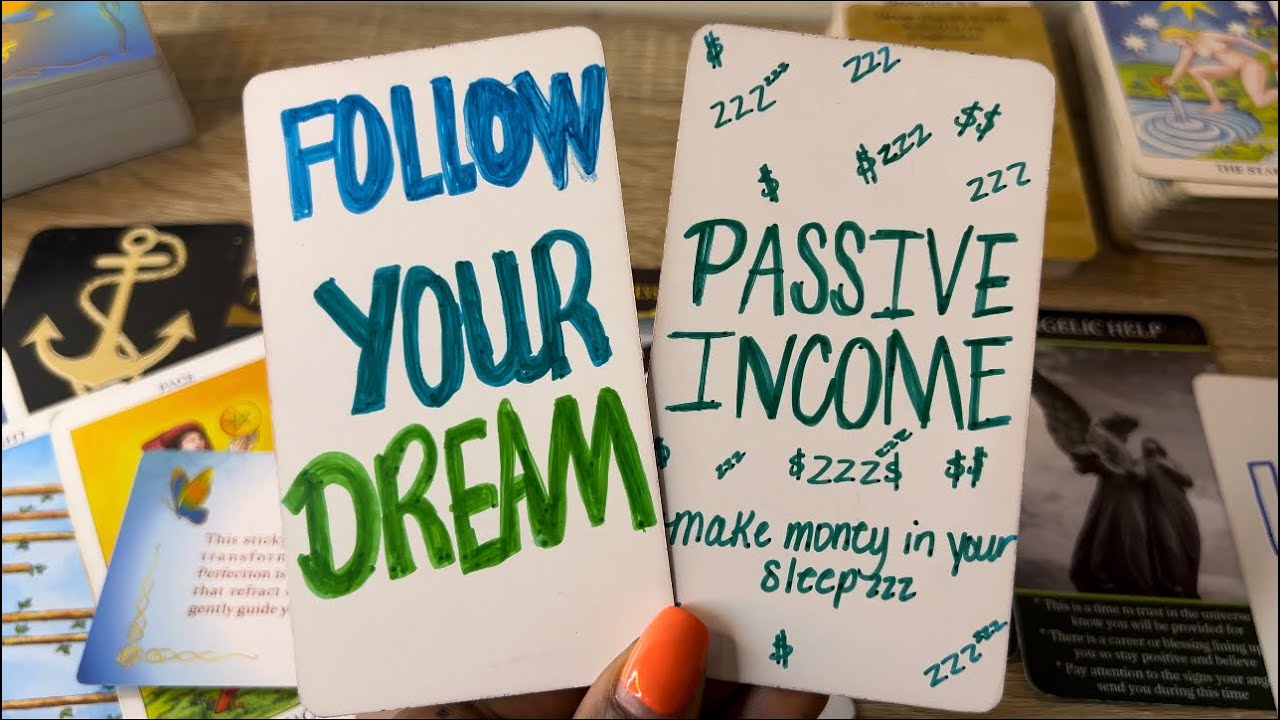 FOLLOW
YOUR
DREAM
$
zzz
zzz
zzz
$zzz
$$
$
zzz
PASSIVE
INCOME
zzz
$zzz$
zzz
$$
make money in your
sleep zzz
$
zzz
zzz
THE STAR
PAGE
This sticky
transform
Perfection is
that refract
gently guide y
GELIC HELP
* This is a time to trust in the universe
know you will be provided for
* There is a career or blessing lining up
you so stay positive and believe
* Pay attention to the signs your ang
send you during this time